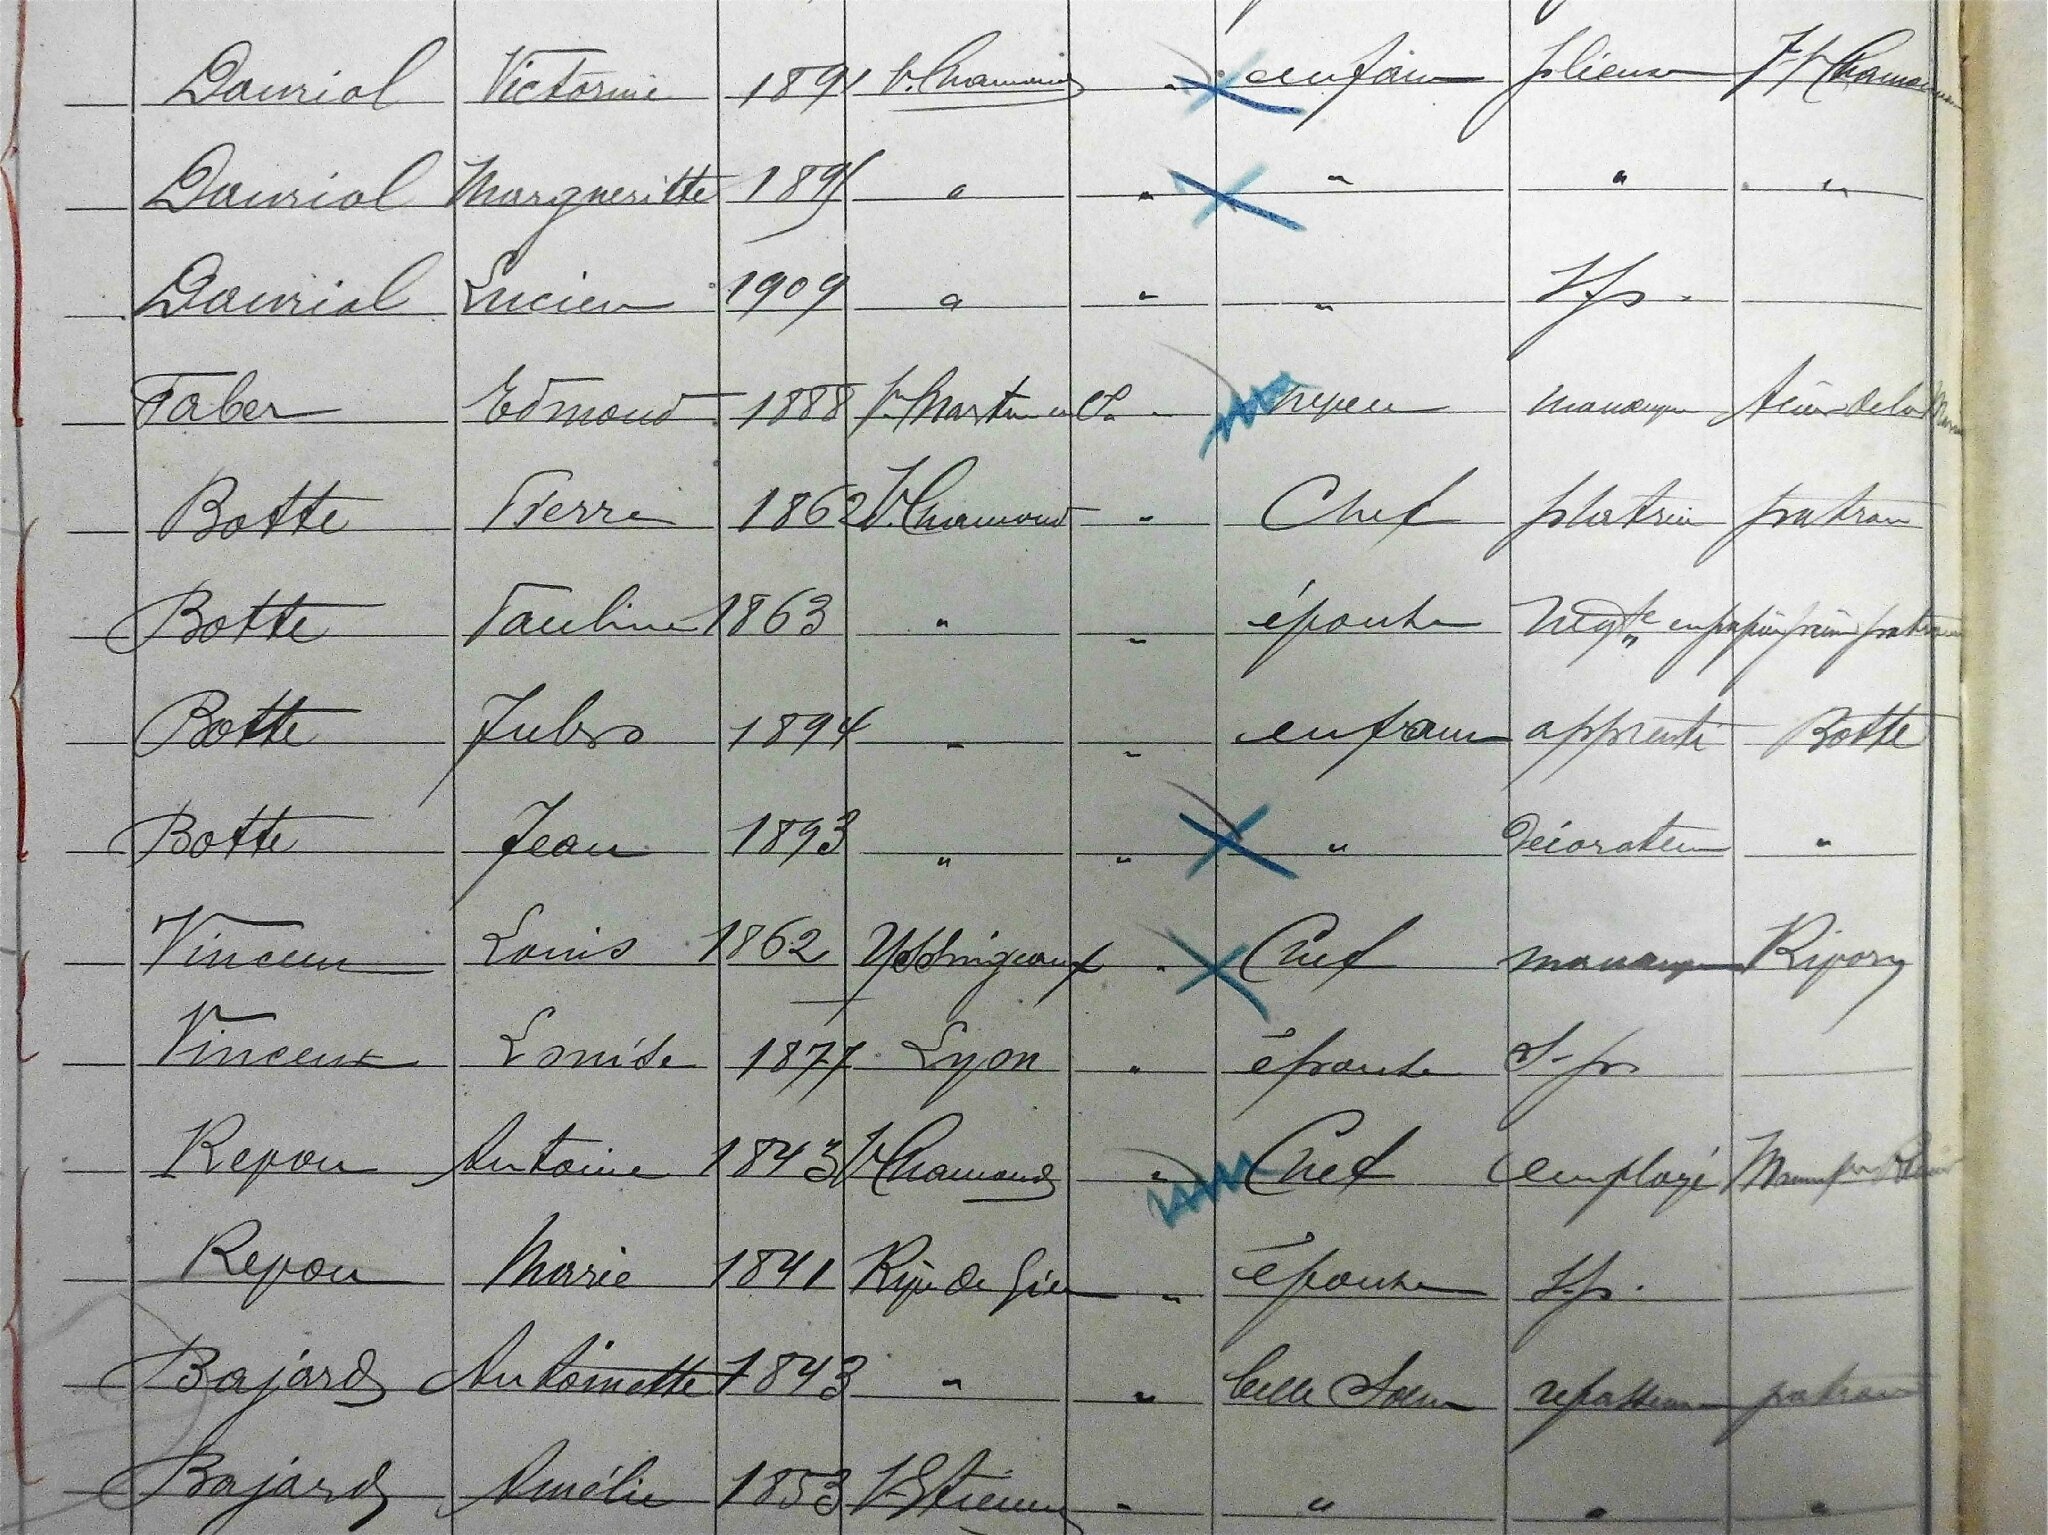 Dauriol Victorine 1891 St Chamond " enfant plieuse
Dauriol Margueritte 1891 " " " " "
Dauriol Lucien 1909 " " " S.p.
Faber Edmond 1888 St Martin en " neveu manœuv
Botte Pierre 1862 St Chamond " Chef platrier patron
Botte Pauline 1863 " " épouse Negte en papier peint patron
Botte Jules 1894 " " enfant apprenti Botte
Botte Jean 1893 " " " Décorateur "
Vincent Louis 1862 Yssingeaux " Chef manœuv
Vincent Louise 1877 Lyon " épouse S.p.
Repou Antoine 1843 St Chamond " Chef employé
Repou Marie 1841 Rive de Gier " épouse S.p.
Bajard Antoinette 1843 " " belle Sœur repasseuse patron
Bajard Amélie 1853 St Etienne " " " "